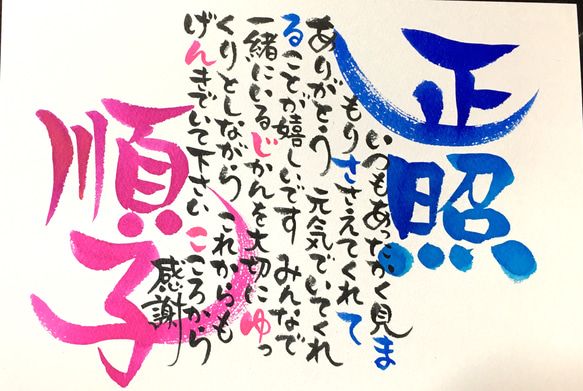 正照
いつもあったかく見ま
もりささえてくれて
ありがとう 元気でいてくれ
ることが嬉しいです みんなで
一緒にいるじかんを大切にゆっ
くりとしながら これからも
げんきでいて下さい こころから
感謝
順子